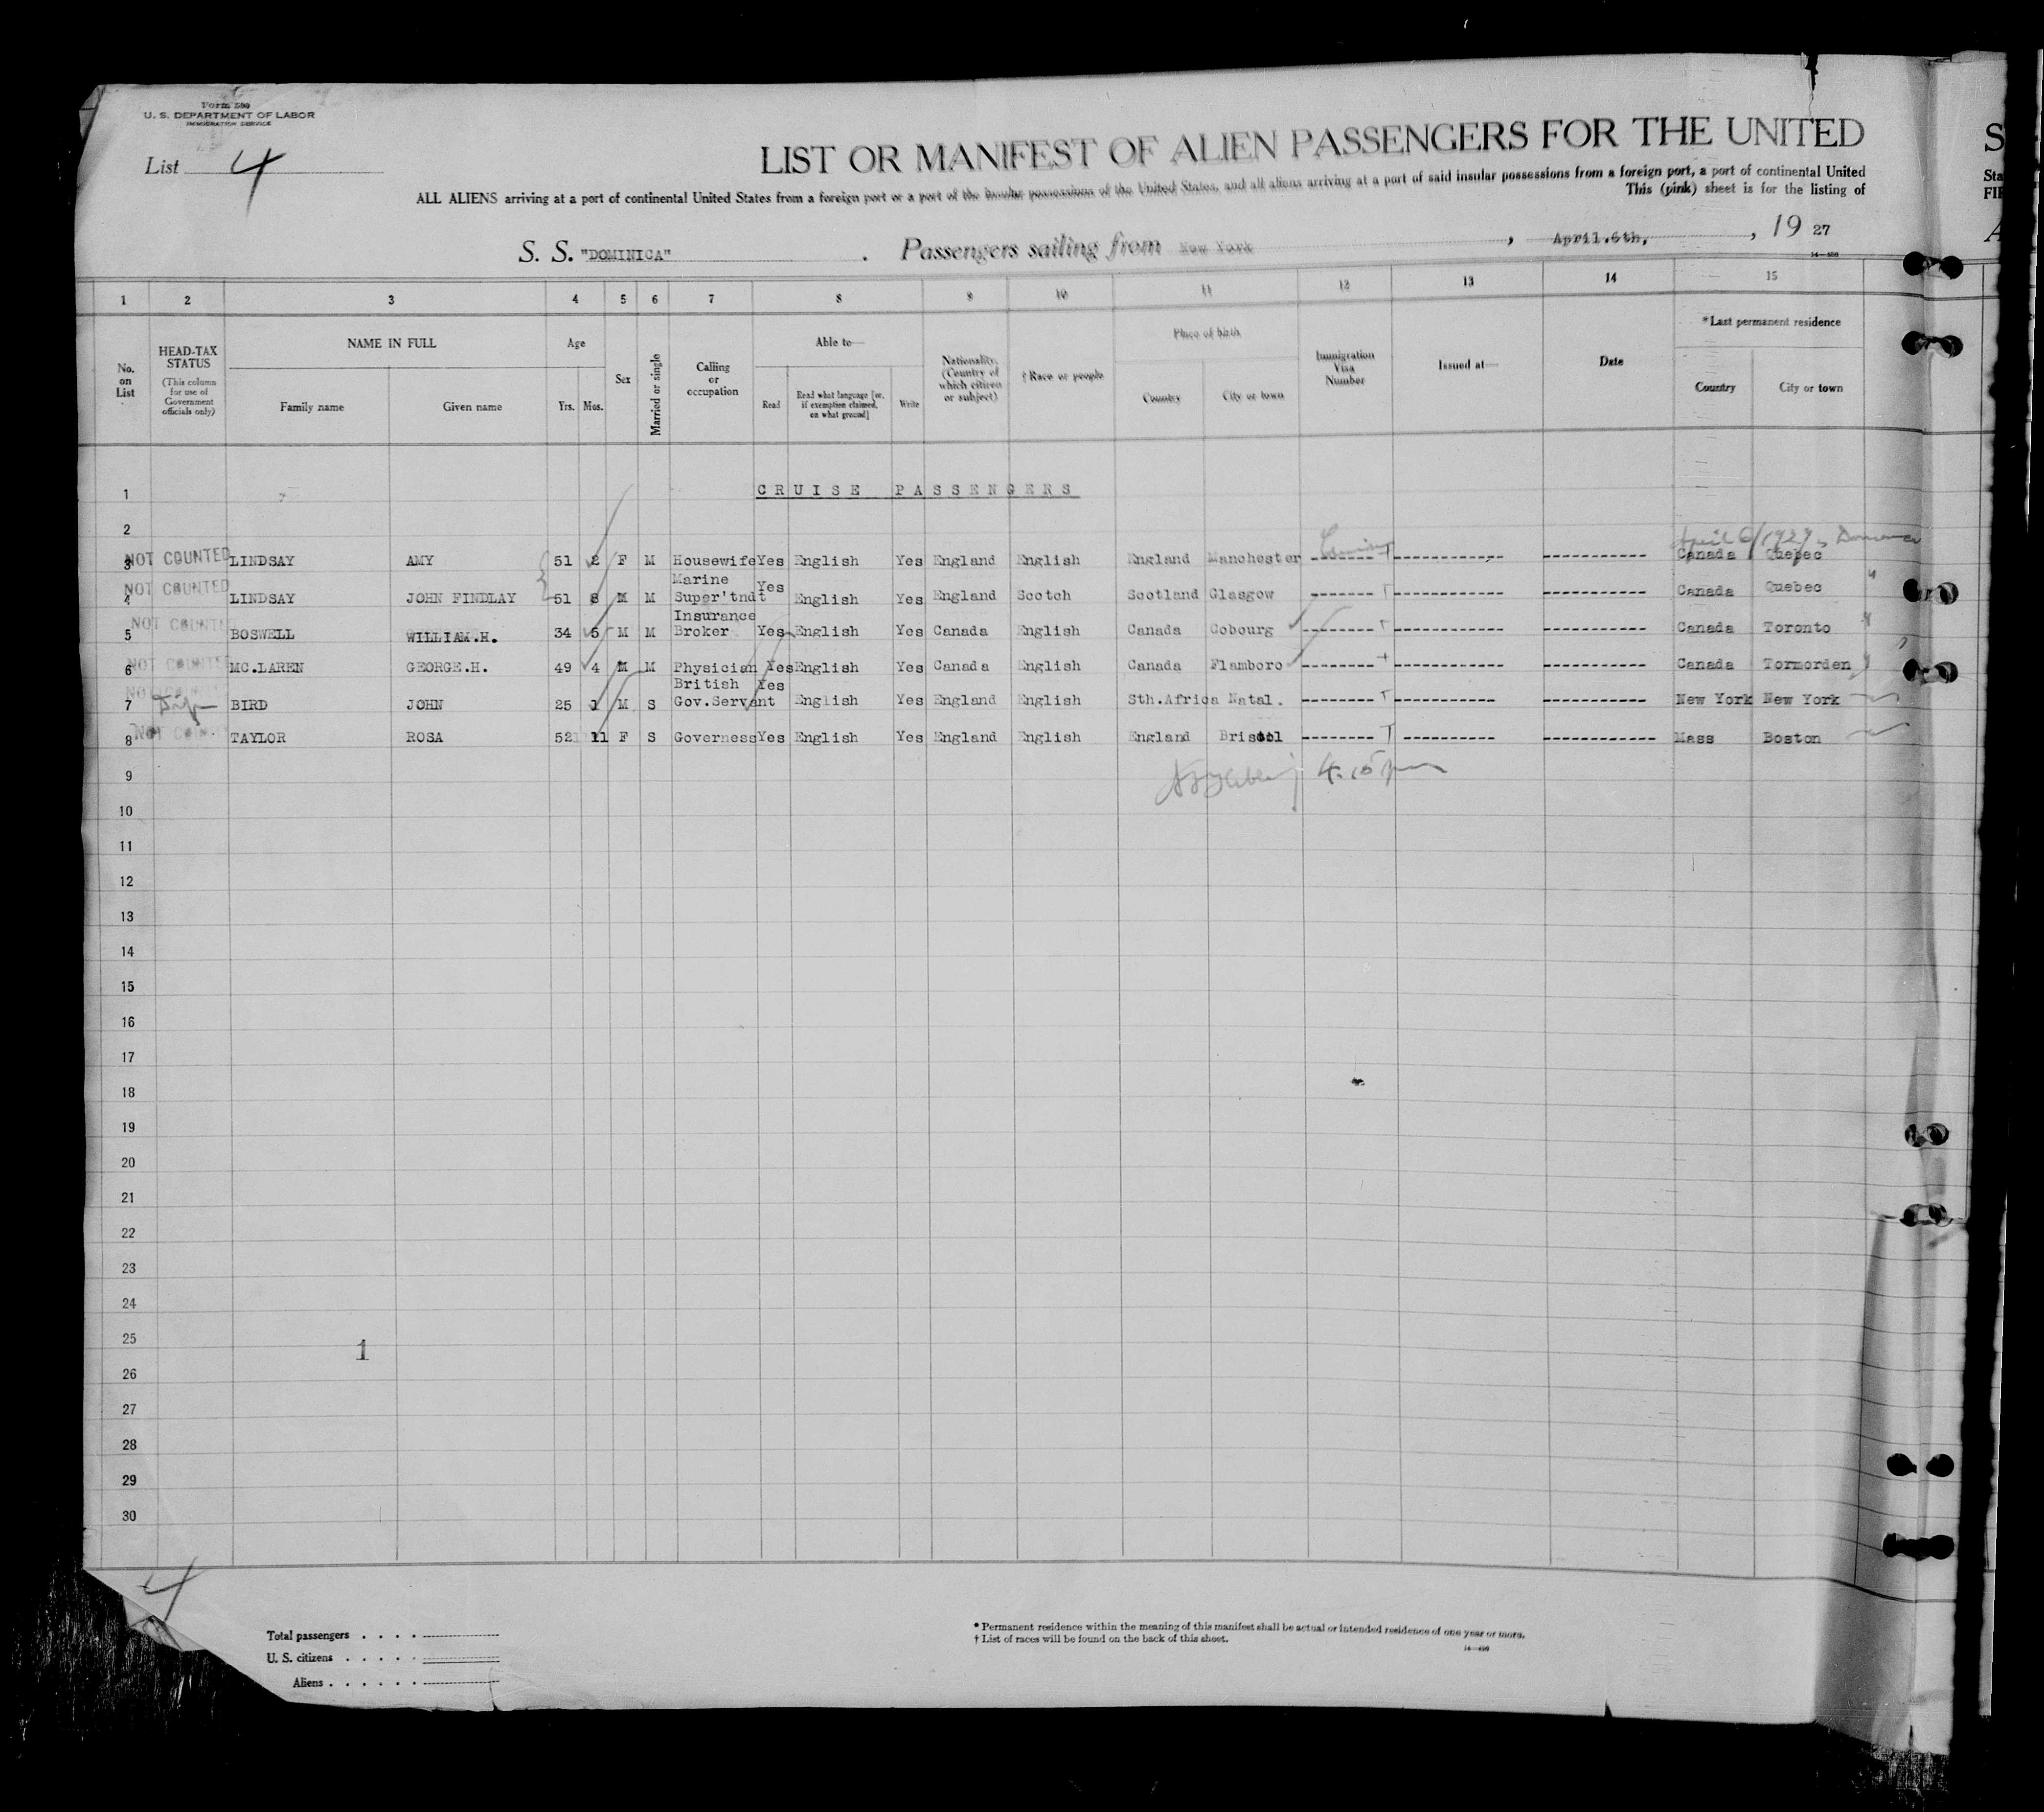 Form 500
U. S. DEPARTMENT OF LABOR
IMMIGRATION SERVICE
List 4
LIST OR MANIFEST OF ALIEN PASSENGERS FOR THE UNITED
S
ALL ALIENS arriving at a port of continental United States from a foreign port or a port of the insular possessions of the United States, and all aliens arriving at a port of said insular possessions from a foreign port, a port of continental United
Sta
This (pink) sheet is for the listing of
FI
S. S. "DOMINICA" . Passengers sailing from New York , April.6th, , 19 27
A
1 2 3 4 5 6 7 8 9 10 11 12 13 14 15
No. on List
HEAD-TAX STATUS (This column for use of Government officials only)
NAME IN FULL
Family name Given name
Age
Yrs. Mos.
Sex
Married or single
Calling or occupation
Able to—
Read
Read what language [or, if exemption claimed, on what ground]
Write
Nationality. (Country of which citizen or subject)
† Race or people
Place of birth
Country City or town
Immigration Visa Number
Issued at—
Date
*Last permanent residence
Country City or town
1 CRUISE PASSENGERS
2 April 6/1927
3 NOT COUNTED LINDSAY AMY 51 2 F M Housewife Yes English Yes England English England Manchester Canada Quebec
4 NOT COUNTED LINDSAY JOHN FINDLAY 51 8 M M Marine Super'tndt Yes English Yes England Scotch Scotland Glasgow Canada Quebec "
5 NOT COUNTED BOSWELL WILLIAM.H. 34 5 M M Insurance Broker Yes English Yes Canada English Canada Cobourg Canada Toronto "
6 NOT COUNTED MC.LAREN GEORGE.H. 49 4 M M Physician Yes English Yes Canada English Canada Flamboro Canada Tormorden "
7 NOT COUNTED BIRD JOHN 25 1 M S British Gov.Servant Yes English Yes England English Sth.Africa Natal. New York New York
8 NOT COUNTED TAYLOR ROSA 52 11 F S Governess Yes English Yes England English England Bristol Mass Boston
9 4.15 pm
10
11
12
13
14
15
16
17
18
19
20
21
22
23
24
25 1
26
27
28
29
30
4
Total passengers . . . .
U. S. citizens . . . . .
Aliens . . . . . .
* Permanent residence within the meaning of this manifest shall be actual or intended residence of one year or more.
† List of races will be found on the back of this sheet.